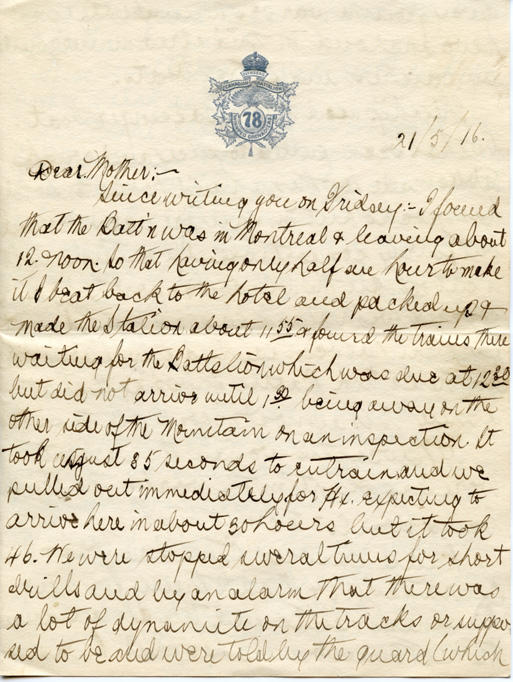 CANADIAN BATTALION
78
WINNIPEG GRENADIERS
21/5/16.
Dear Mother:-
Since writing you on Friday:- I found
that the Batt'n was in Montreal & leaving about
12. noon so that having only half an hour to make
it I beat back to the hotel and packed up &
made the Station about 11 55 & found the trains there
waiting for the Battalion which was due at 12 30
but did not arrive until 1 30 being away on the
other side of the Mountain on an inspection. It
took us just 85 seconds to entrain and we
pulled out immediately for Hx. expecting to
arrive here in about 30 hours but it took
46. We were stopped several times for short
drills and by an alarm that there was
a lot of dynamite on the tracks or suppo-
sed to be and were told by the guard (which